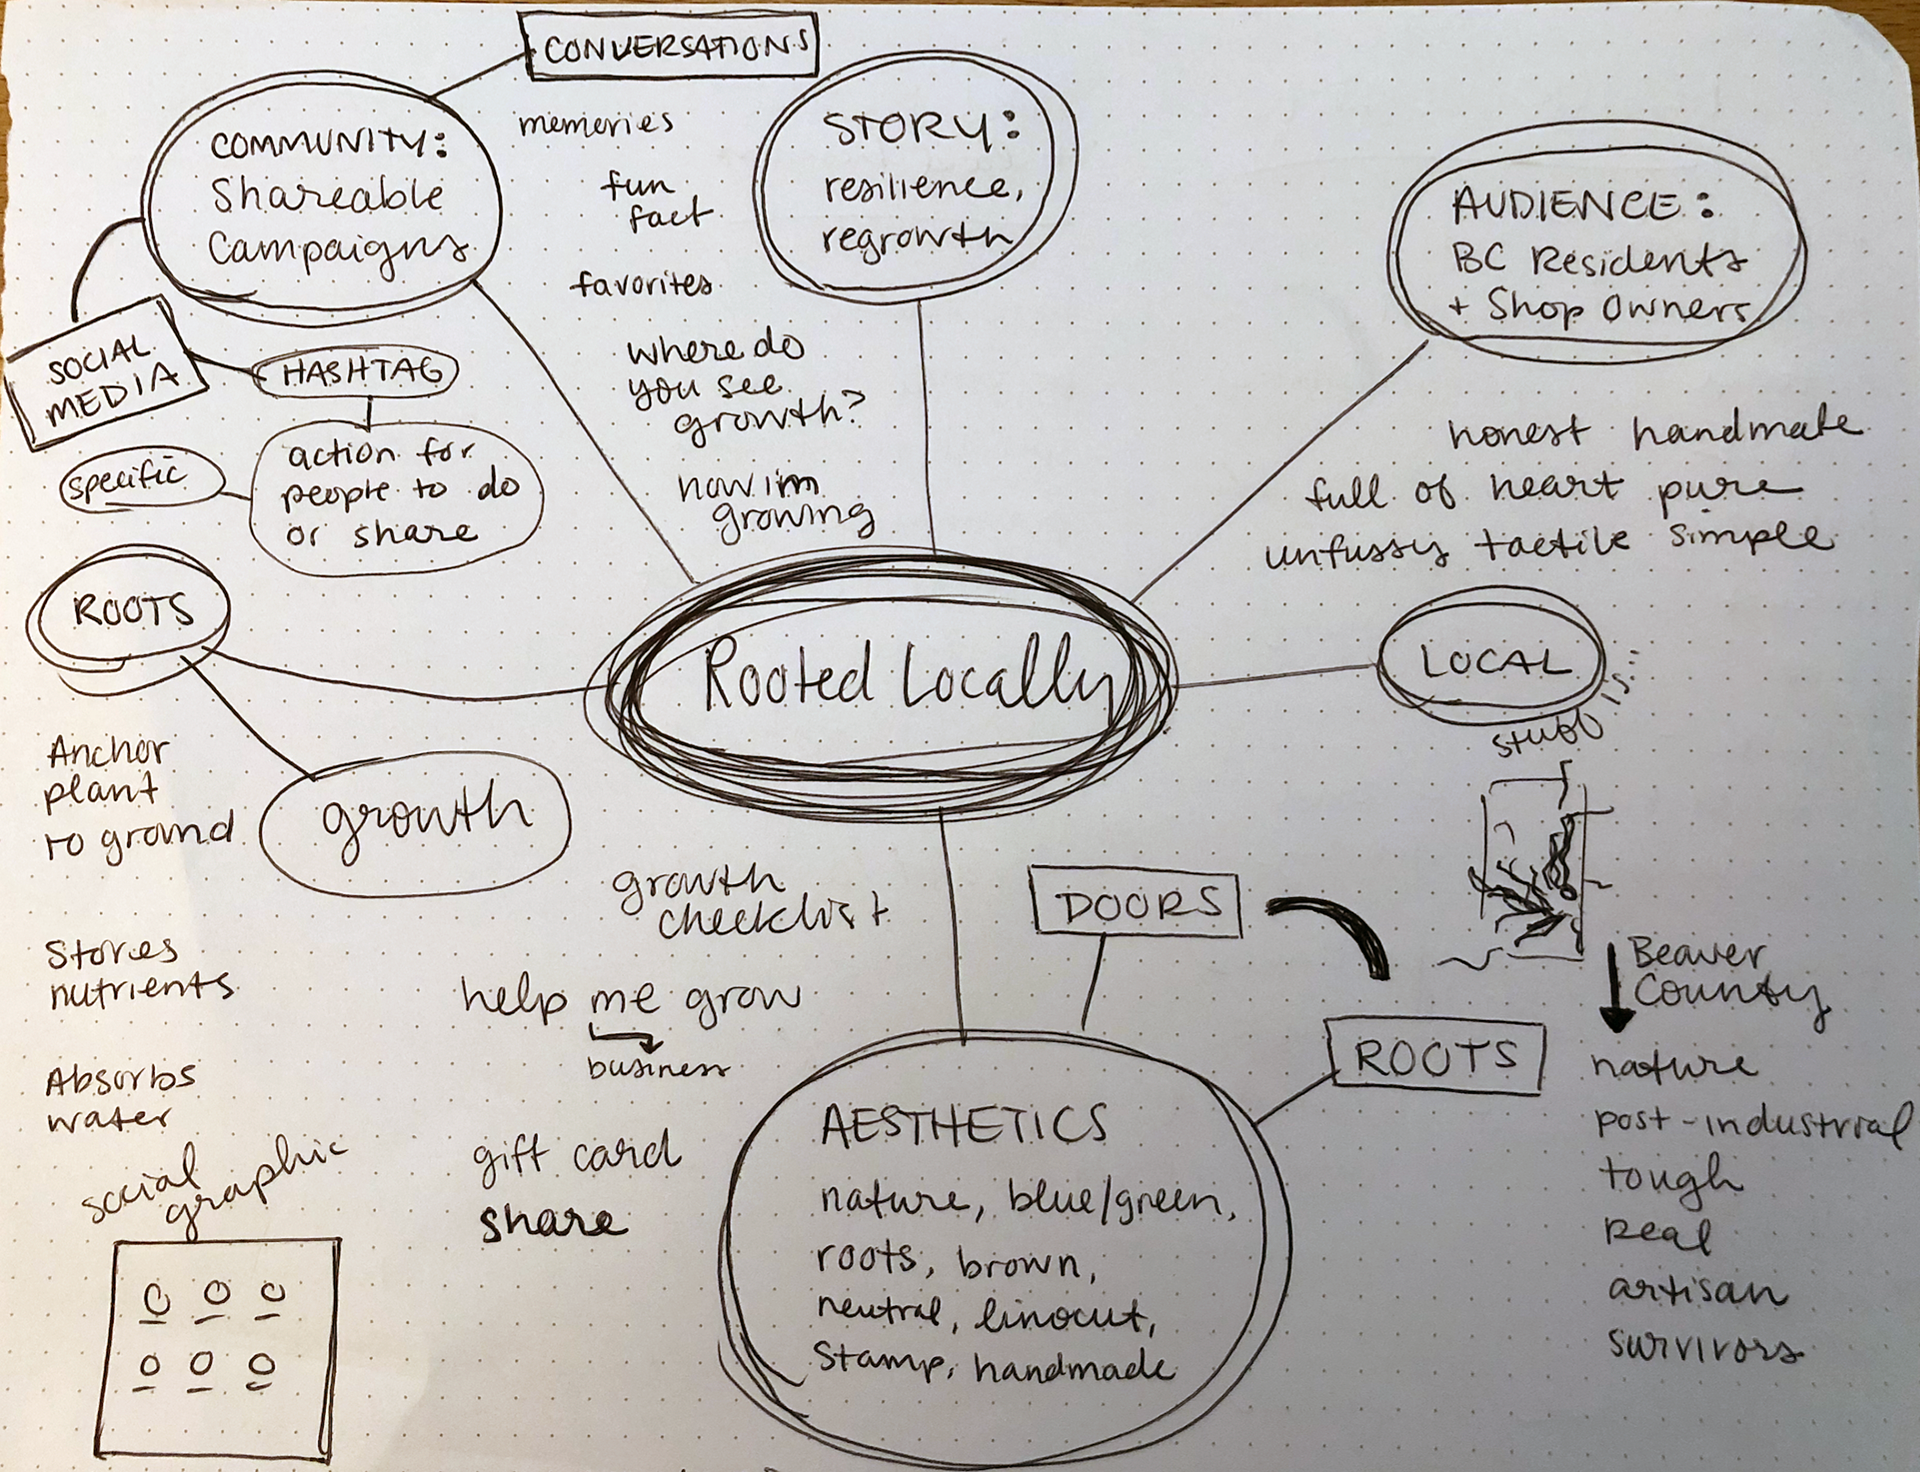 CONVERSATIONS
COMMUNITY:
Shareable
Campaigns
memories
fun
fact
favorites
where do
you see
growth?
how im
growing
STORY:
resilience,
regrowth
AUDIENCE:
BC Residents
+ Shop Owners
SOCIAL
MEDIA
HASHTAG
specific
action for
people to do
or share
honest handmade
full of heart pure
unfussy tactile simple
ROOTS
Rooted Locally
LOCAL
Anchor
plant
to ground
growth
growth
checklist
DOORS
Stores
nutrients
help me grow
business
Beaver
County
ROOTS
nature
post-industrial
tough
Real
artisan
survivors
Absorbs
water
social
graphic
gift card
share
AESTHETICS
nature, blue/green,
roots, brown,
neutral, linocut,
Stamp, handmade